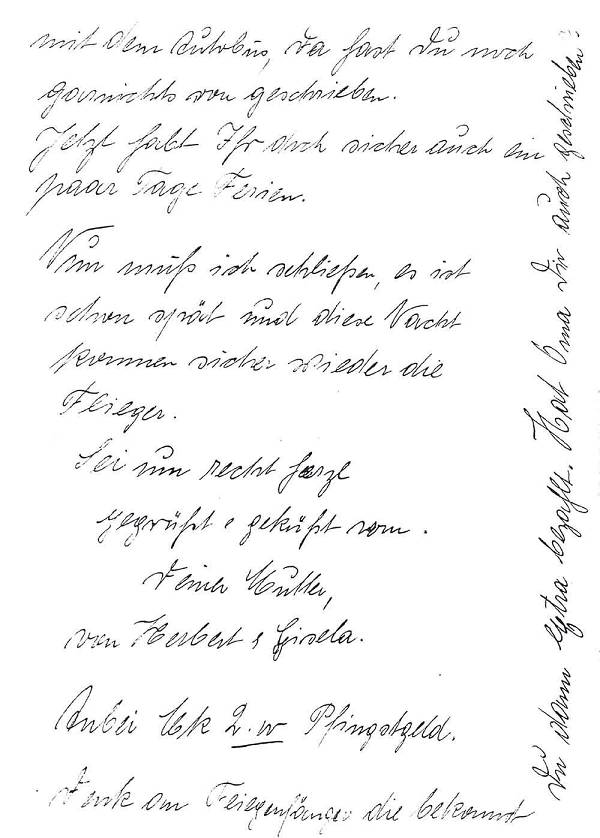 mit dem Autobus, da hast Du noch
garnichts von geschrieben.
Jetzt habt Ihr doch sicher auch ein
paar Tage Ferien.
Nun muß ich schließen, es ist
schon spät und diese Nacht
kommen sicher wieder die
Flieger.
Sei nun recht herzl
gegrüßt & geküßt von
Deiner Mutter,
von Herbert & Gisela.
Anbei Mk 2.- Pfingstgeld.
Denk an Fliegenfänger die bekommst
Du dann extra bezahlt. Hat Oma Dir auch geschrieben?